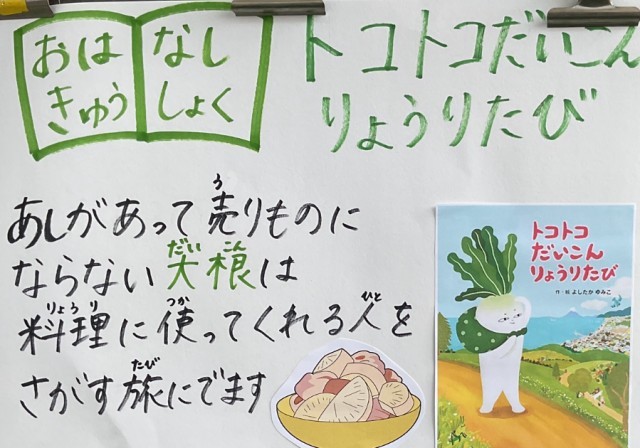 おはなし
きゅうしょく
トコトコだいこん
りょうりたび
あしがあって売りものに
う
ならない大根は
だい こん
料理に使ってくれる人を
りょうり つか ひと
さがす旅にでます
たび
トコトコ
だいこん
りょうりたび
作・絵 よしたか ゆみこ